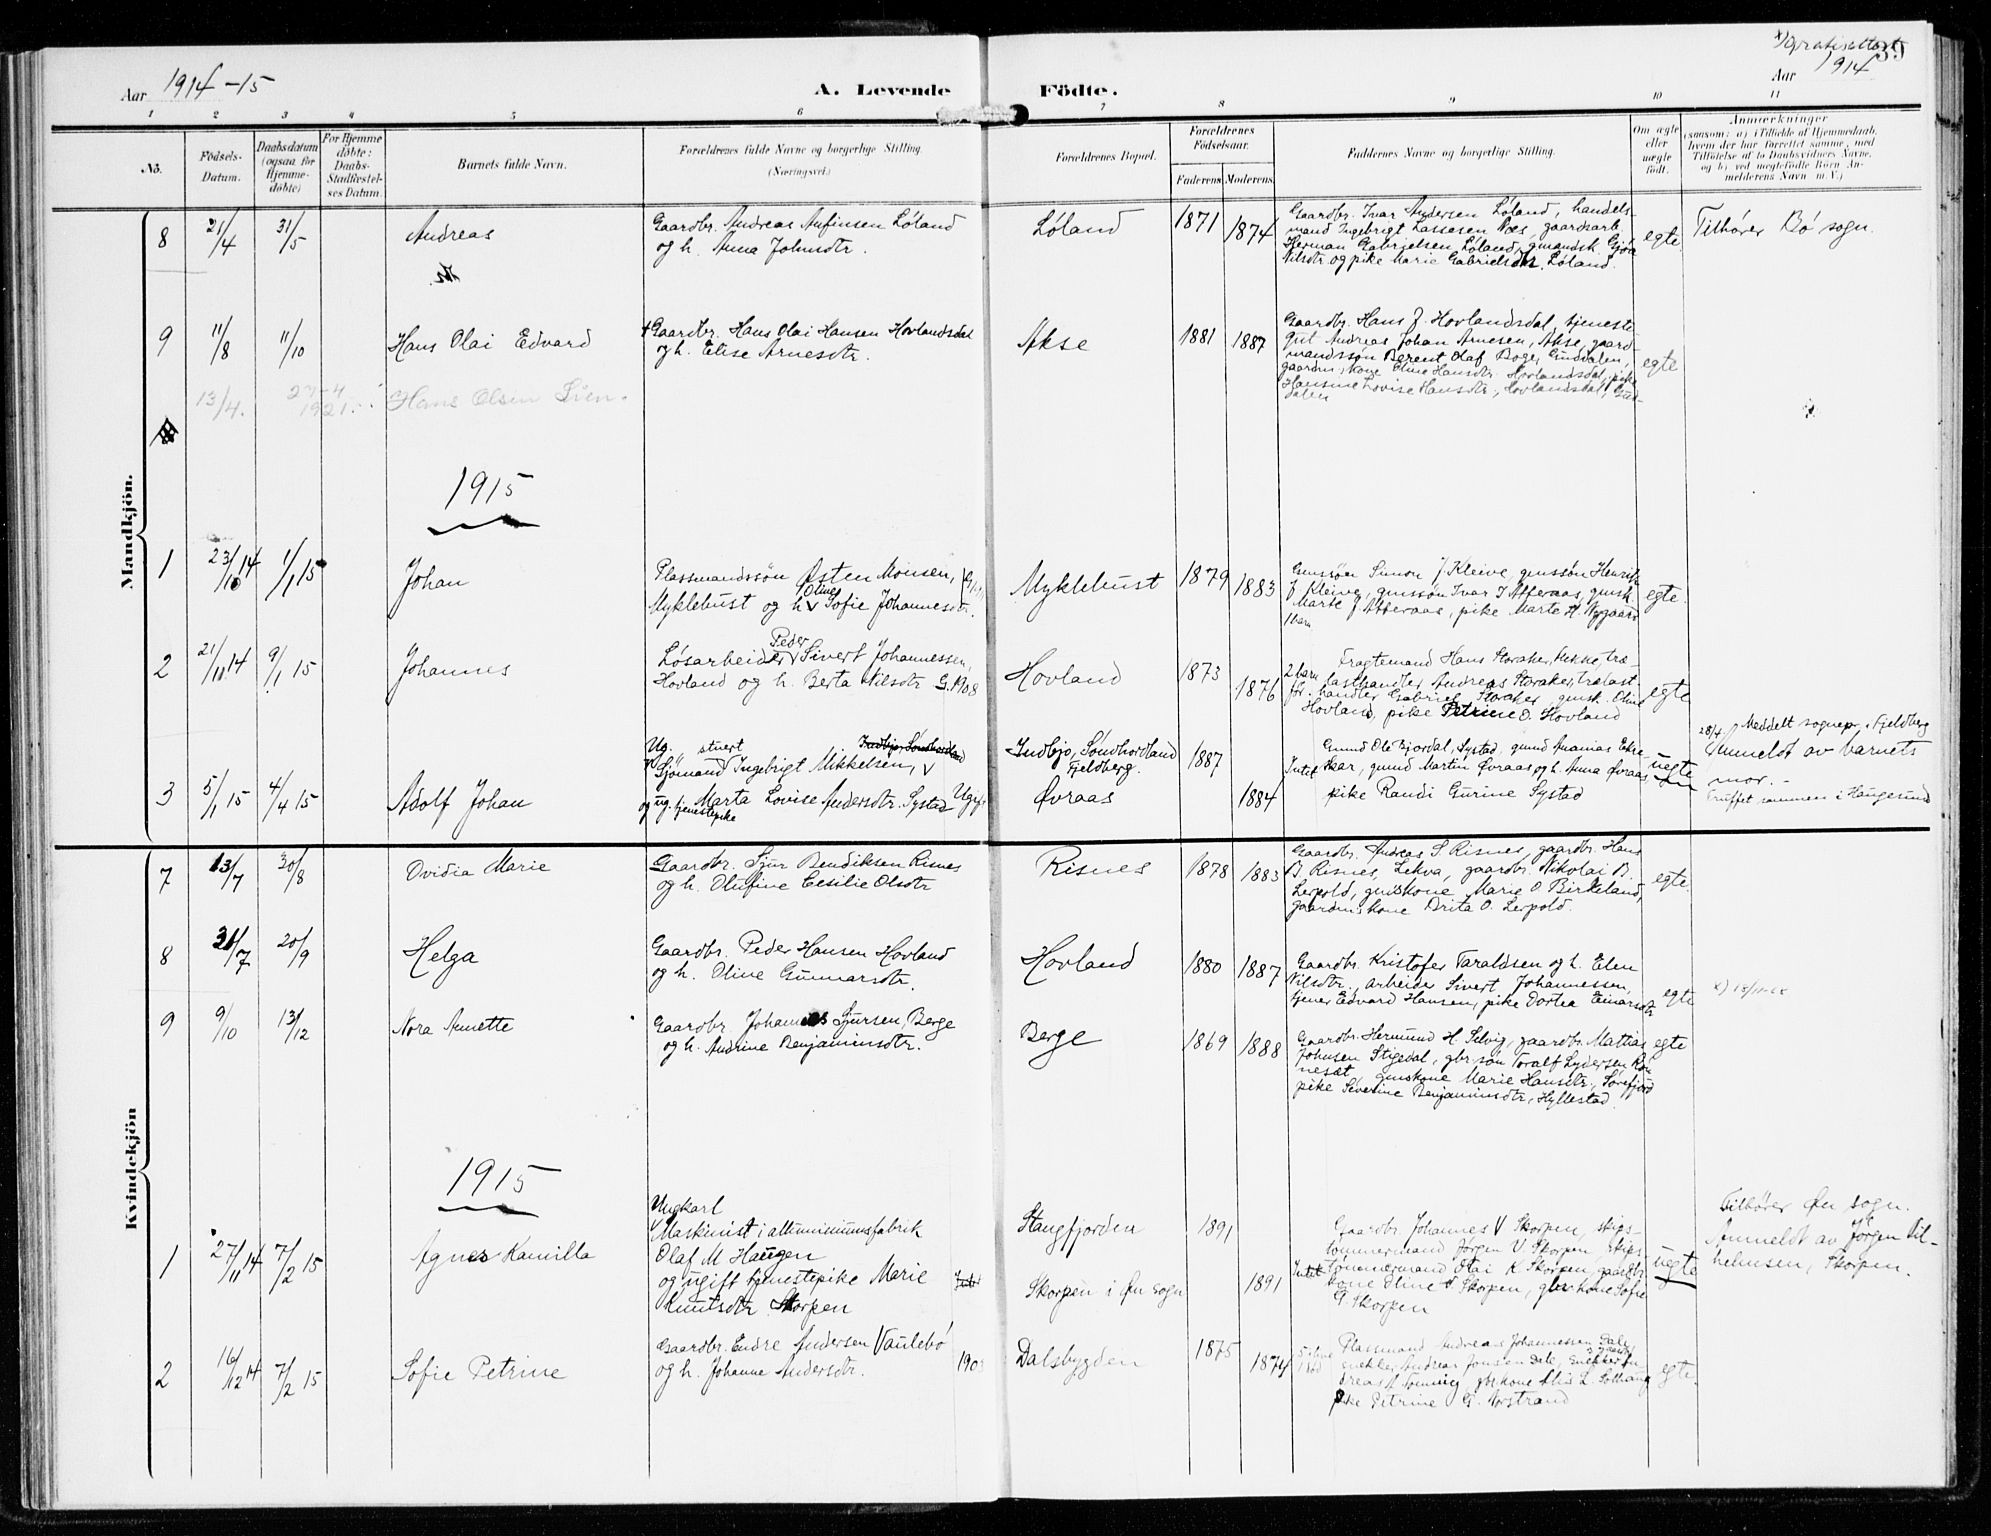 Aar 1914-15
A. Levende Födte.
Aar 1914 39
1 2 3 4 5 6 7 8 9 10 11
No.
Födsels-Datum.
Daabsdatum (ogsaa for Hjemme-döbte)
For Hjemme döbte: Daabs-Stadfæstel-ses Datum.
Barnets fulde Navn.
Forældrenes fulde Navne og borgerlige Stilling. (Næringsvei.)
Forældrenes Bopæl.
Forældrenes Födselsaar.
Faderens Moderens
Faddernes Navne og borgerlige Stilling.
Om ægte eller uægte födt.
Anmærkninger (saasom: a) i Tilfælde af Hjemmedaab, hvem der har forrettet samme, med Tilföielse af to Daabsvidners Navne, og b) ved uægtefödte Börn An-melderens Navn m. V.)
Mandkjön.
8 21/4 31/5 Andreas
Gaardbr. Andreas Anfinsen Løland
og h. Anna Johnsdtr.
Løland 1871 1874
Gaardbr. Ivar Andersen Løland, handels-
mand Ingebrigt Lassesen Næs, gaardarb.
Herman Gabrielsen Løland, gmandsk. Gjøa
Nilsdtr. og pike Marie Gabrielsdtr. Løland.
egte Tilhører Bø sogn.
9 11/8 11/10 Hans Olai Edvard
Gaardbr. Hans Olai Hansen Hovlandsdal
og h. Elise Arnesdtr.
Akse 1881 1887
Gaardbr. Hans J. Hovlandsdal, tjeneste-
gut Andreas Johan Arnesen, Akse, gaard-
mandssøn Berent Olaf Boge, Guddalen,
gaardm. kone Oline Hansdtr. Hovlandsdal, pike
Hansine Lovise Hansdtr, Hovlandsdal, Gud-
dalen
egte
13/4. 27-4 1921. Hans Olsen Lien.
1915
1 23/10 14 1/1 15 Johan
Plassmandssön Østen Monsen,
Myklebust og h. Oline Sofie Johannesdtr.
Myklebust 1879 1883
Gmssøn Simon J Kleive, gmssøn Henrik
J Kleive, gmssøn Ivar J Atteraas, gmsk.
Marte J Atteraas, pike Marte A. Nygaard
1 barn
egte.
2 21/11 14 9/1 15 Johannes
Løsarbeider Peder Sivert Johannessen,
Hovland og h. Berta Nilsdtr G. 1908
Hovland 1873 1876
2 barn før.
Fragtemand Hans Storaker, Flekke, træ-
lasthandler Andreas Storaker, trælast-
handler Gabriel Storaker, gmsk. Oline
Hovland, pike Petrine O. Hovland
egte
3 5/1 15 4/4 15 Adolf Johan
Ug. stuert Indbjo, Søndhordland
Sjømand Ingebrigt Mikkelsen,
og ug. tjenestepike Marta Lovise Andersdtr. Systad Ugift
Indbjo, Søndhordland
Fjeldberg.
Øvraas
1887 1884
Gmnd Ole Bjordal, Systad, gmnd Ananias Eike-
Intet skar, gmnd Martin Øvraas og h. Anna Øvraas,
pike Randi Gurine Systad
uegte
28/4 Meddelt sognepr. i Fjeldberg
Anmeldt av barnets
mor. -
Truffet sammen i Haugesund
Kvindekjön
7 13/7 30/8 Ovidia Marie
Gaardbr. Sjur Bendiksen Risnes
og h. Olufine Cesilie Olsdtr
Risnes 1878 1883
Gaardbr. Andreas S. Risnes, gaardbr. Hans
B Risnes, Lekva, gaardbr. Nikolai B.
Lerpold, gmskone Marie O Birkeland,
gaardmskone Brita O. Lerpold.
egte
8 31/7 20/9 Helga
Gaardbr. Peder Hansen Hovland
og h. Oline Gunnarsdtr.
Hovland 1880 1887
Gaardbr. Kristofer Taraldsen og h. Elen
Nilsdtr., arbeider Sivert Johannessen,
tjener Edvard Hansen, pike Dortea Einarsdtr
egte
9 9/10 13/12 Nora Annette
Gaardbr. Johannes Sjursen, Berge
og h. Andrine Benjaminsdtr.
Berge 1869 1888
Gaardbr. Hermund H. Selvig, gaardbr. Mathias
Johnsen Stigedal, gbr. søn Toralf Lydersen Røn-
nesæt, gmskone Marie Hansdtr, Sørefjord
pike Severine Benjaminsdtr, Hyllestad.
egte
1915
1 27/11 14 7/2 15 Agnes Kamilla
Ungkarl
Maskinist i alluminiumsfabrik
Olaf M Haugen
og ugift tjenestepike Marie
Knutsdtr. Skorpen
Stangfjorden
Skorpen i Øn sogn
1891 1891
Gaardbr. Johannes V Skorpen, skips-
tømmermand Jørgen V. Skorpen, skips-
Intet tømmermand Olai K Skorpen, gaardbr
kone Eline A Skorpen, gbr kone Sofie
G. Skorpen
uegte
Tilhører Øn sogn.
Anmeldt av Jørgen Vil-
helmsen, Skorpen.
2 16/12 14 7/2 15 Sofie Petrine
Gaardbr. Endre Andersen Vaulebø
og h. Johanne Andersdtr.
Dalsbygden 1875 1874
Plassmand Andreas Johannessen Dale,
snekker Andreas Jonsen Dale, snekker An-
dreas A Tonning, gbr kone Alis L. Solhaug
pike Petrine G. Norstrand
egte.